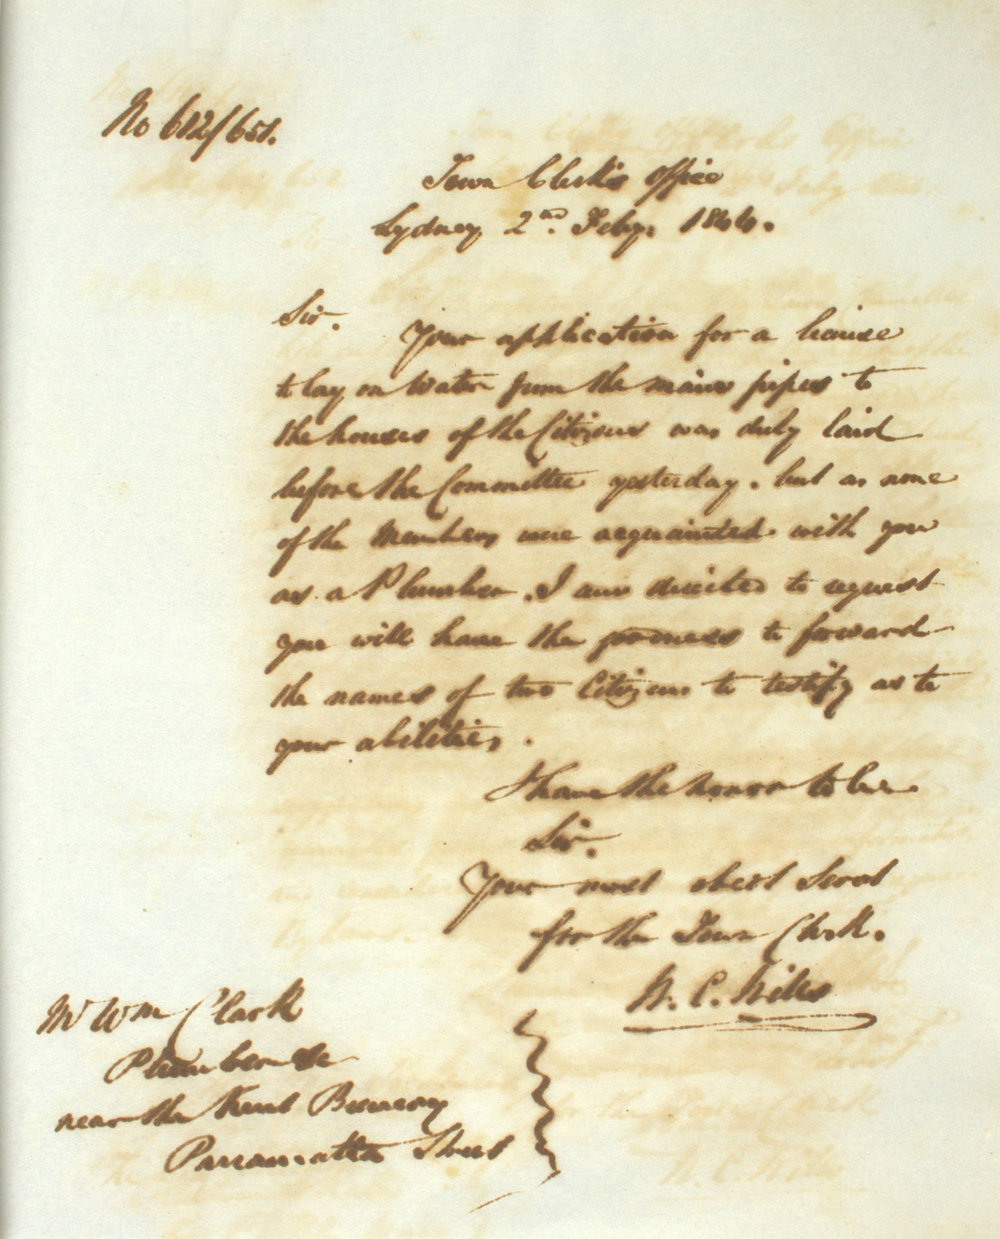 No 612/651.
Town Clerk's Office
Sydney 2nd. Feby. 1844.
Sir.
Your application for a license
to lay on Water from the main pipes to
the houses of the Citizens was duly laid
before the Committee yesterday. but as none
of the Members were acquainted with you
as a Plumber. I am directed to request
you will have the goodness to forward
the names of two Citizens to testify as to
your abilities.
I have the honor to be
Sir.
Your most obedt Servt
for the Town Clerk.
W. C. Wills
Mr Wm Clark
Plumber &c
near the Kent Brewery
Parramatta Street